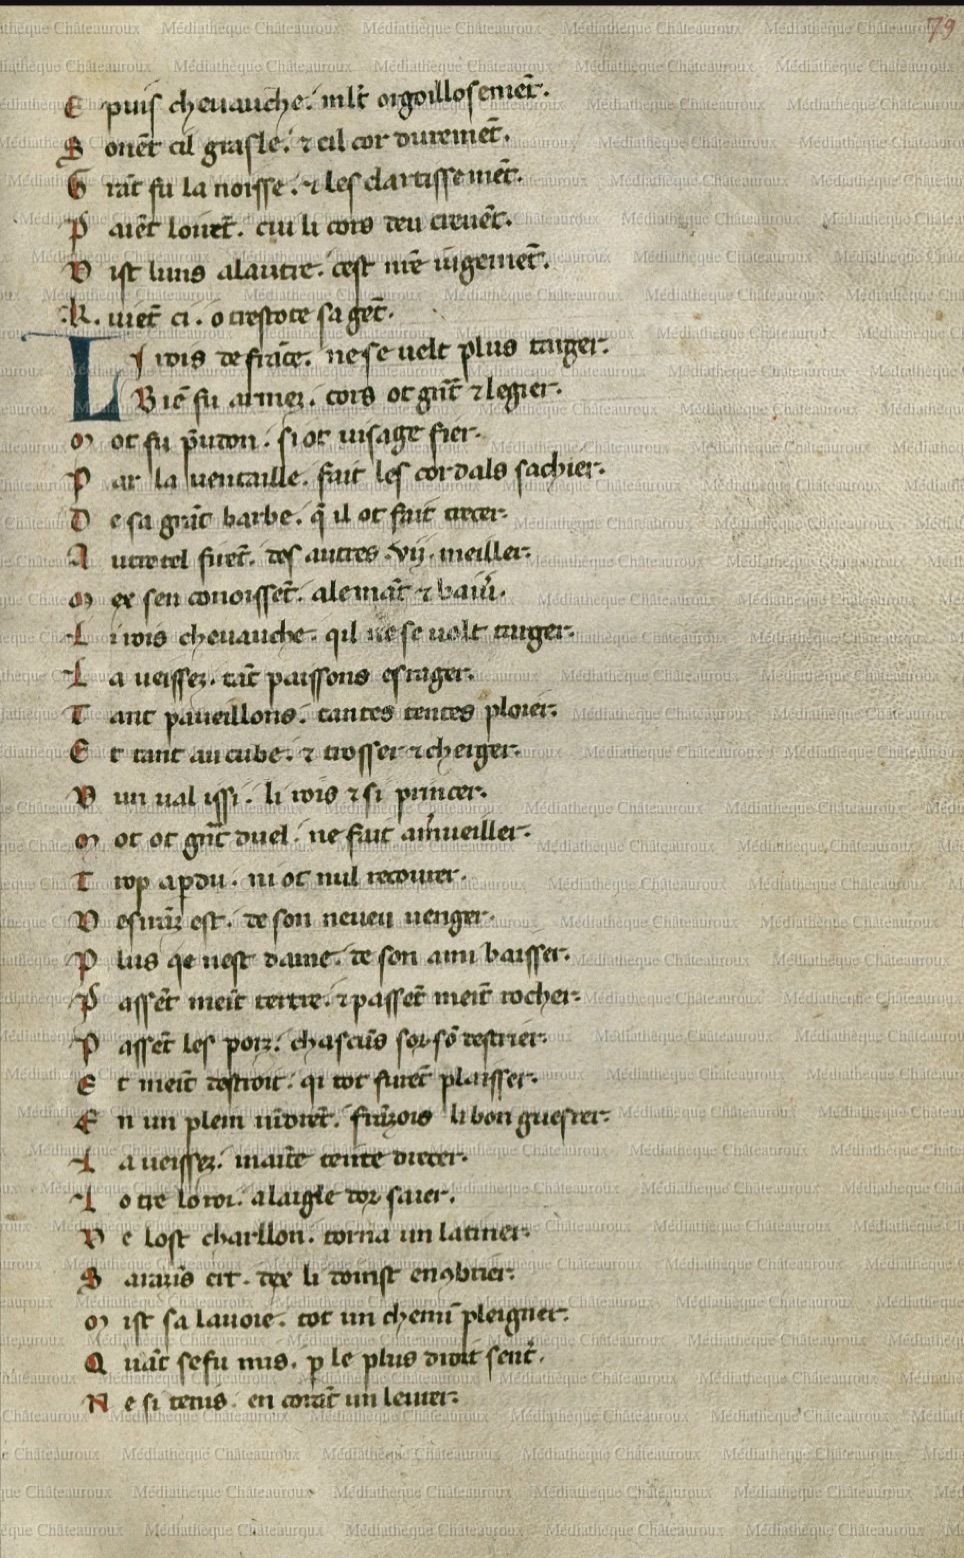 79
E puis cheuauche. mlt orgoillosemēt.
S onēt cil grasle. ⁊ cil cor duremēt.
G rāt fu la noisse. ⁊ les clartissemēt.
P aiēt loiiēt. cui li cors deu creuēt.
D ist luns alautre. cest nr̄e iugemēt.
.K. uiēt ci. o trestote sa gēt.
L I rois de frāce. ne se uelt plus targer.
B iē fu armez. cors ot gn̄t ⁊ legier.
M ot fu p̄udon. si ot uisage fier.
P ar la uentaille. fait les cordals sachier.
D e sa grāt barbe. q̄ il ot fait trecer.
A utretel firēt. des autres .vij. meiller.
M ex sen conoissēt. alemāt ⁊ baiuͥ.
L i rois cheuauche. qil ne se uolt targer.
L a ueissez. tāt paissons esrager.
T ant paueillons. tantes tentes ploier.
E t tant aucube. ⁊ trosser ⁊ cherger.
D un ual issi. li rois ⁊ si princer.
M ot ot gn̄t duel. ne fait am̄ueiller.
T rop a ꝑdu. ni ot nul recourer.
D esirāz est. de son neueu uenger.
P lus qe nest dame. de son ami baisser.
P assēt meīt tertre. ⁊ passēt meīt rocher.
P assēt les porz. chascūs sor sō destrier.
E t meīt destroit. qi tot furēt plaisser.
E n un plein uīdrēt. frāzois li bon guerrer.
L a ueissez. mainte tente drecer.
L o tre lo roi. a laigle dor saier.
D e lost charllon. torna un latiner.
S arazīs ert. dex li doinst enꝯbrier.
M ist sa lauoie. tot un chemī pleigner.
Q uāt se fu mis. ꝑ le plus droit senͭ.
N e si tenis. en corāt un leurer.